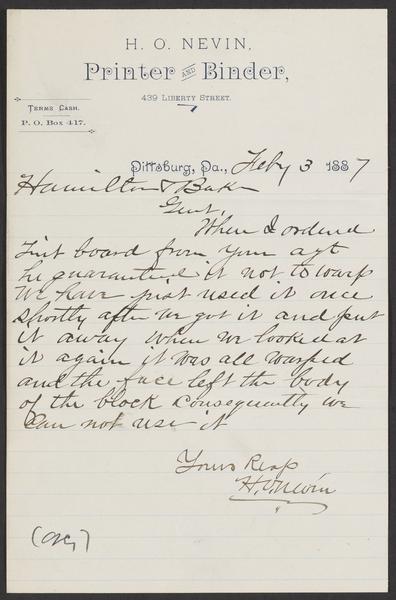 H. O. NEVIN,
Printer AND Binder,
439 LIBERTY STREET.
TERMS CASH.
P. O. BOX 417.
Pittsburg, Pa., Feby 3 1887
Hamilton & Baker
Gent,
When I ordered
Tint board from your agt
he guaranteed it not to warp
We have just used it once
shortly after we got it and put
it away when we looked at
it again it was all warped
and the face left the body
of the block Consequently we
Can not use it
Yours Resp
H. O. Nevin